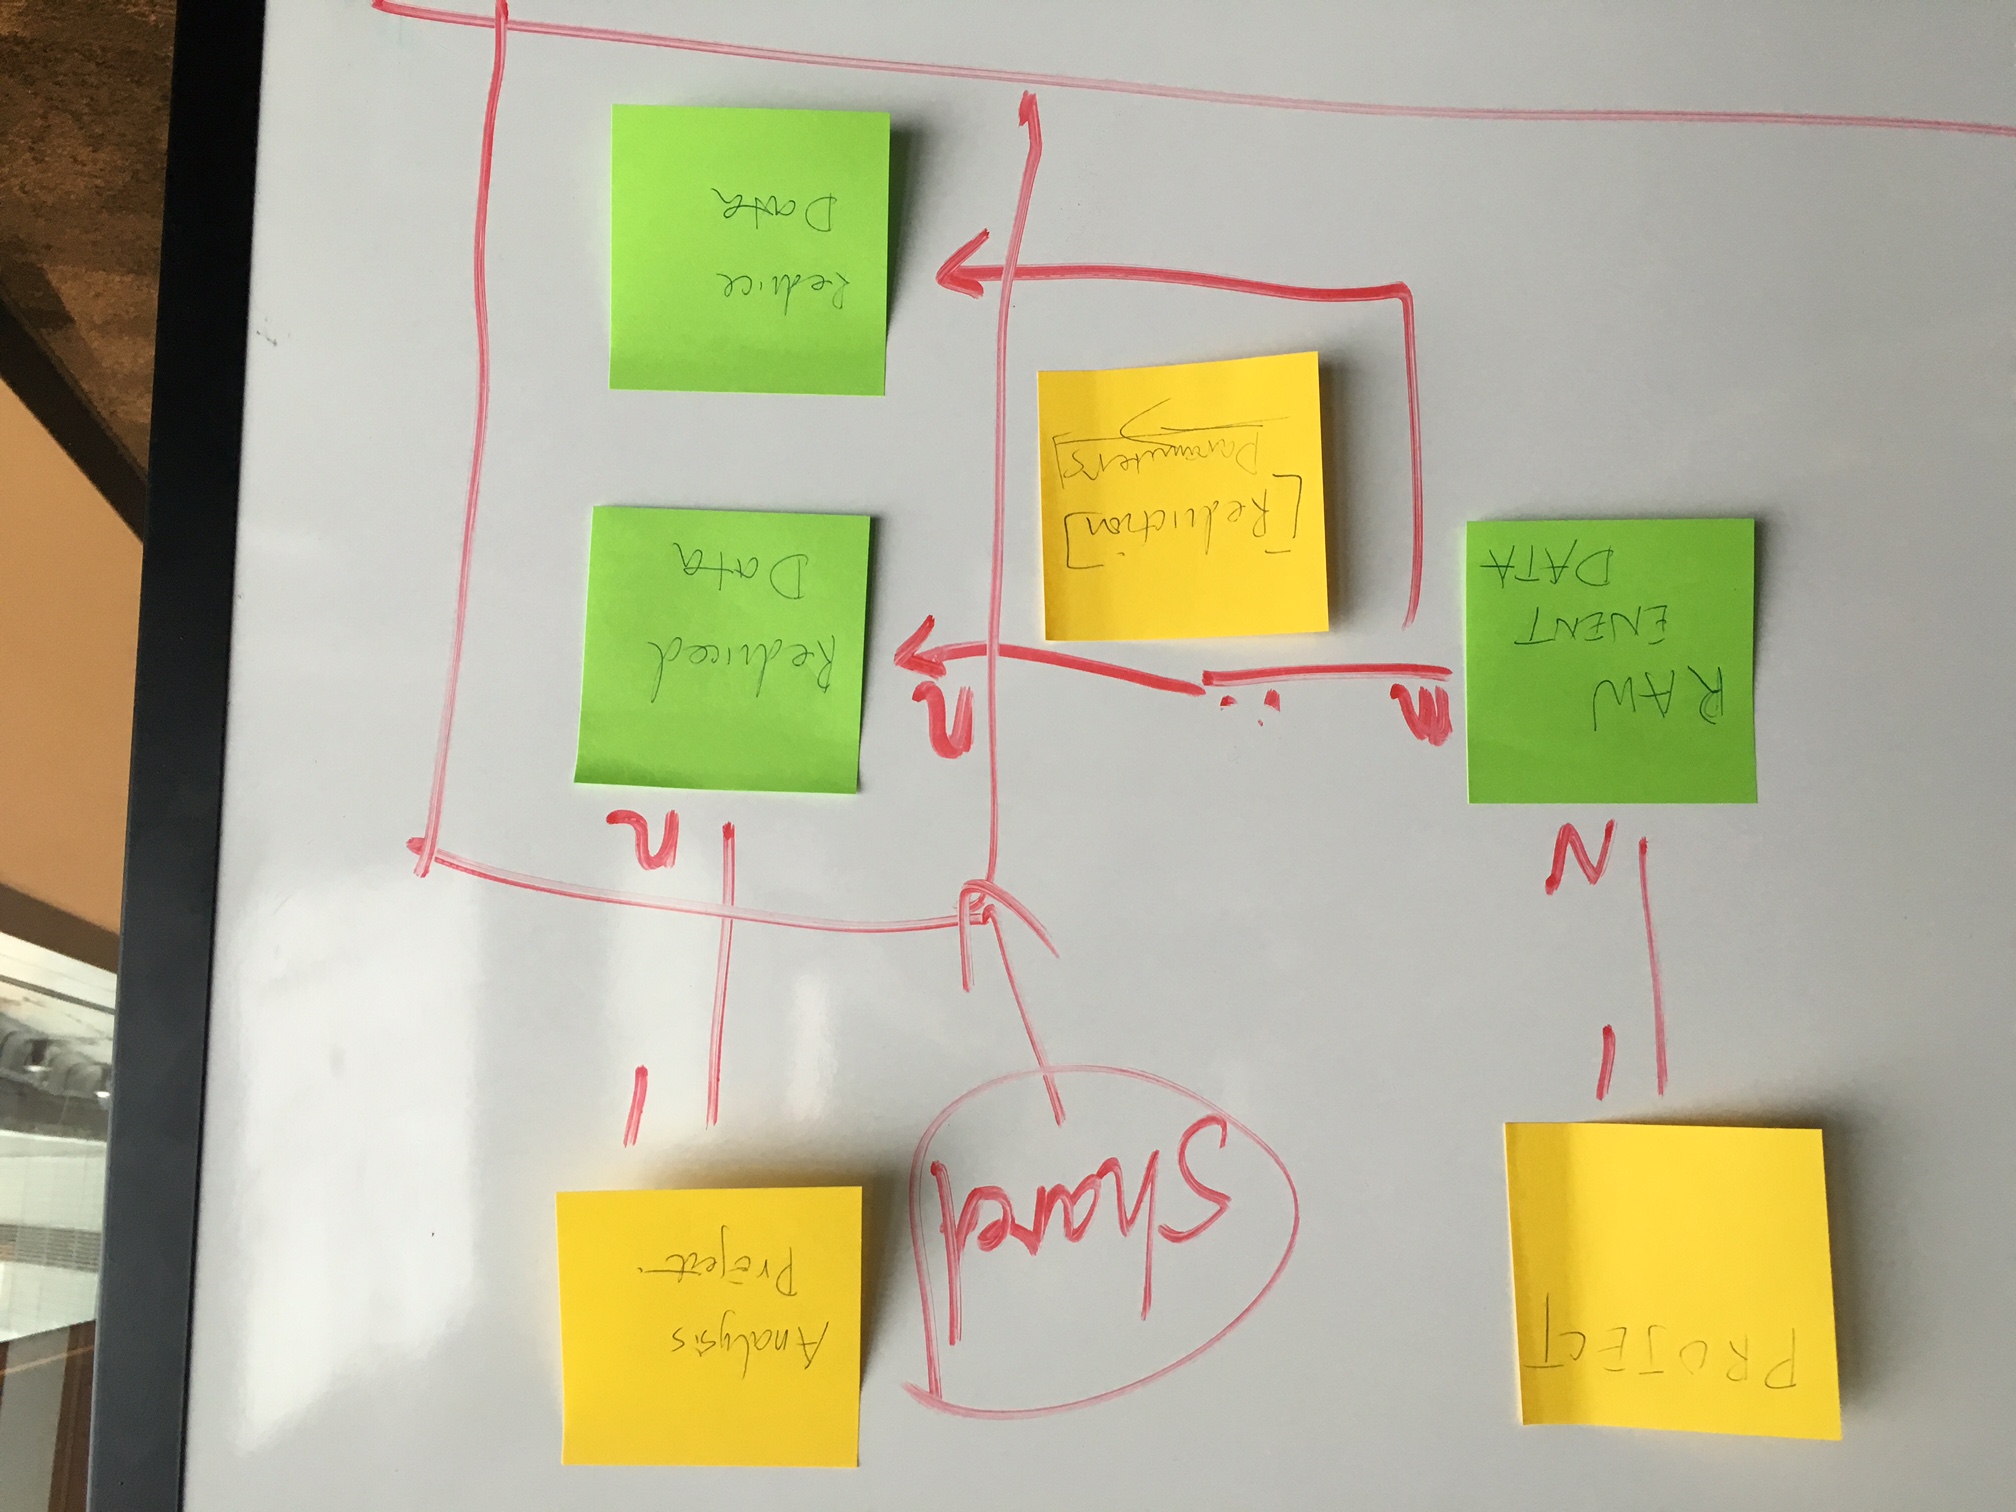 PROJECT
shared
Analysis
Project.
1
1
N
n
m
n
RAW
ENENT
DATA
Reduced
Data
[Reduction]
Parameters]
Reduce
Data